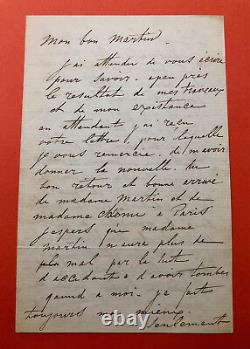 Mon bon Martin.
j'ai attendu de vous écrire
pour savoir. apeu près
le resultat de mes travaux
et de mon existance
en attendant j'ai reçu
votre lettre, pour laquelle
je vous remercie. de m'avoir
donner la nouvelle. du
bon retour et bonne arrivé
de madame Martin et de
madame à Paris
j'espers que madame
martin n'aura plus de
plus mal par la suite
d'accedant à d'avoir tomber
quand a moi. je fait
toujours mienx
Seulement
© ttmdurham